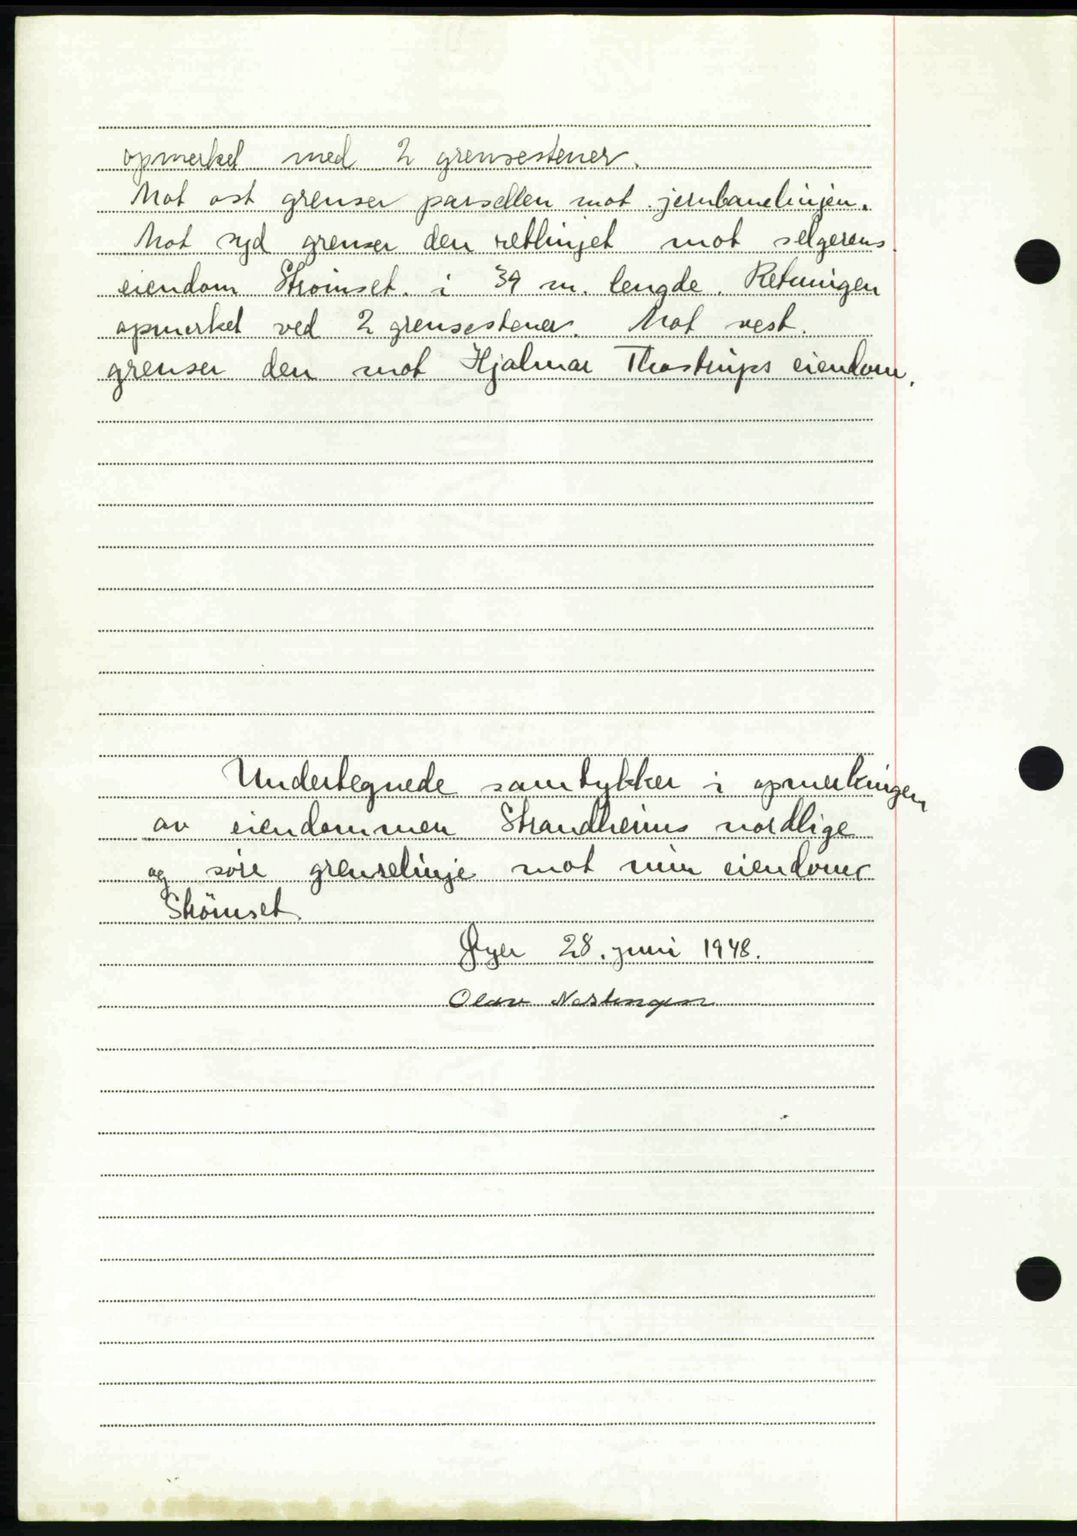 opmerket med 2 grensestener.
Mot ost grenser parsellen mot jernbanelinjen.
Mot syd grenser den retlinjet mot selgerens
eiendom Strömset i 39 m. lengde. Retningen
opmerket ved 2 grensestener. Mot vest.
grenser den mot Hjalmar Thostrups eiendom.
Undertegnede samtykker i opmerkingen
av eiendommen Strandheims nordlige
og söre grenselinje mot min eiendom
Strömset
Øyer 28. juni 1948.
Olav